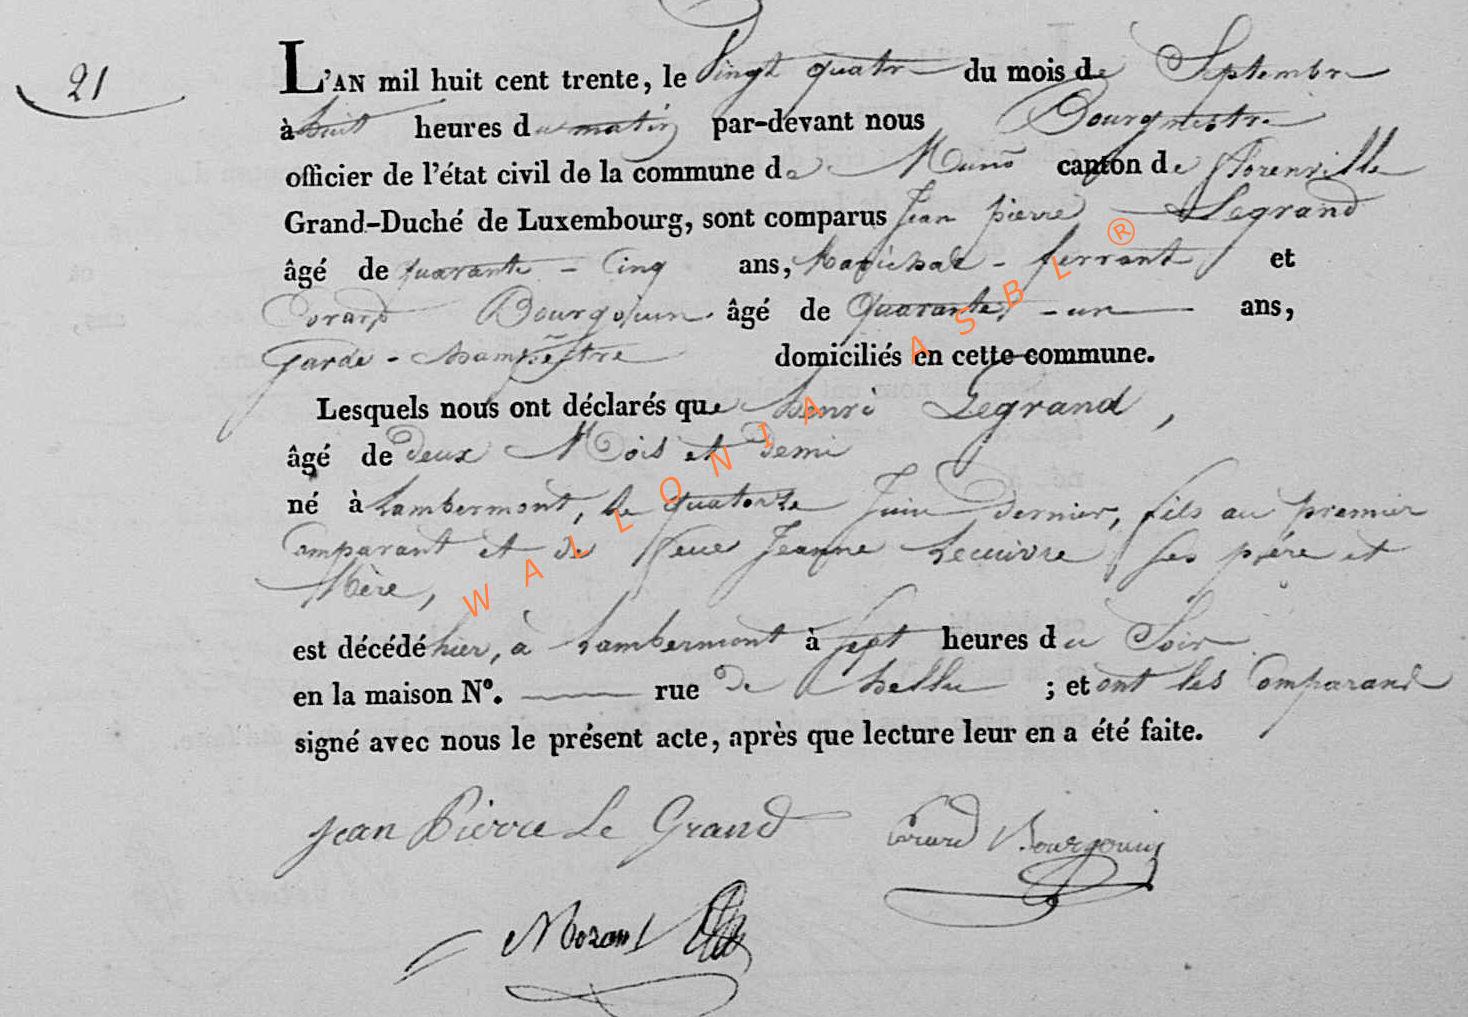 21
L'AN mil huit cent trente, le Vingt quatre du mois de Septembre
à huit heures du matin par-devant nous Bourgmestre
officier de l'état civil de la commune de Muno canton de Florenville
Grand-Duché de Luxembourg, sont comparus Jean pierre Legrand
âgé de quarante - Cinq ans, Maréchal - ferrant et
Evrard Bourgoiuin âgé de Quarante - un ans,
Garde - Champêtre domiciliés en cette commune.
Lesquels nous ont déclarés que henri Legrand,
âgé de deux Mois et Demi
né à Lambermont, le quatorze Juin dernier, fils au premier
Comparant et de feue Jeanne Lecuivre ses père et
Mère,
est décédé hier, à Lambermont à sept heures du Soir
en la maison N°. rue de ; et ont les Comparand
signé avec nous le présent acte, après que lecture leur en a été faite.
Jean Pierre Le Grand Evrard Bourgouin
Morant
WALLONIA ASBL ®